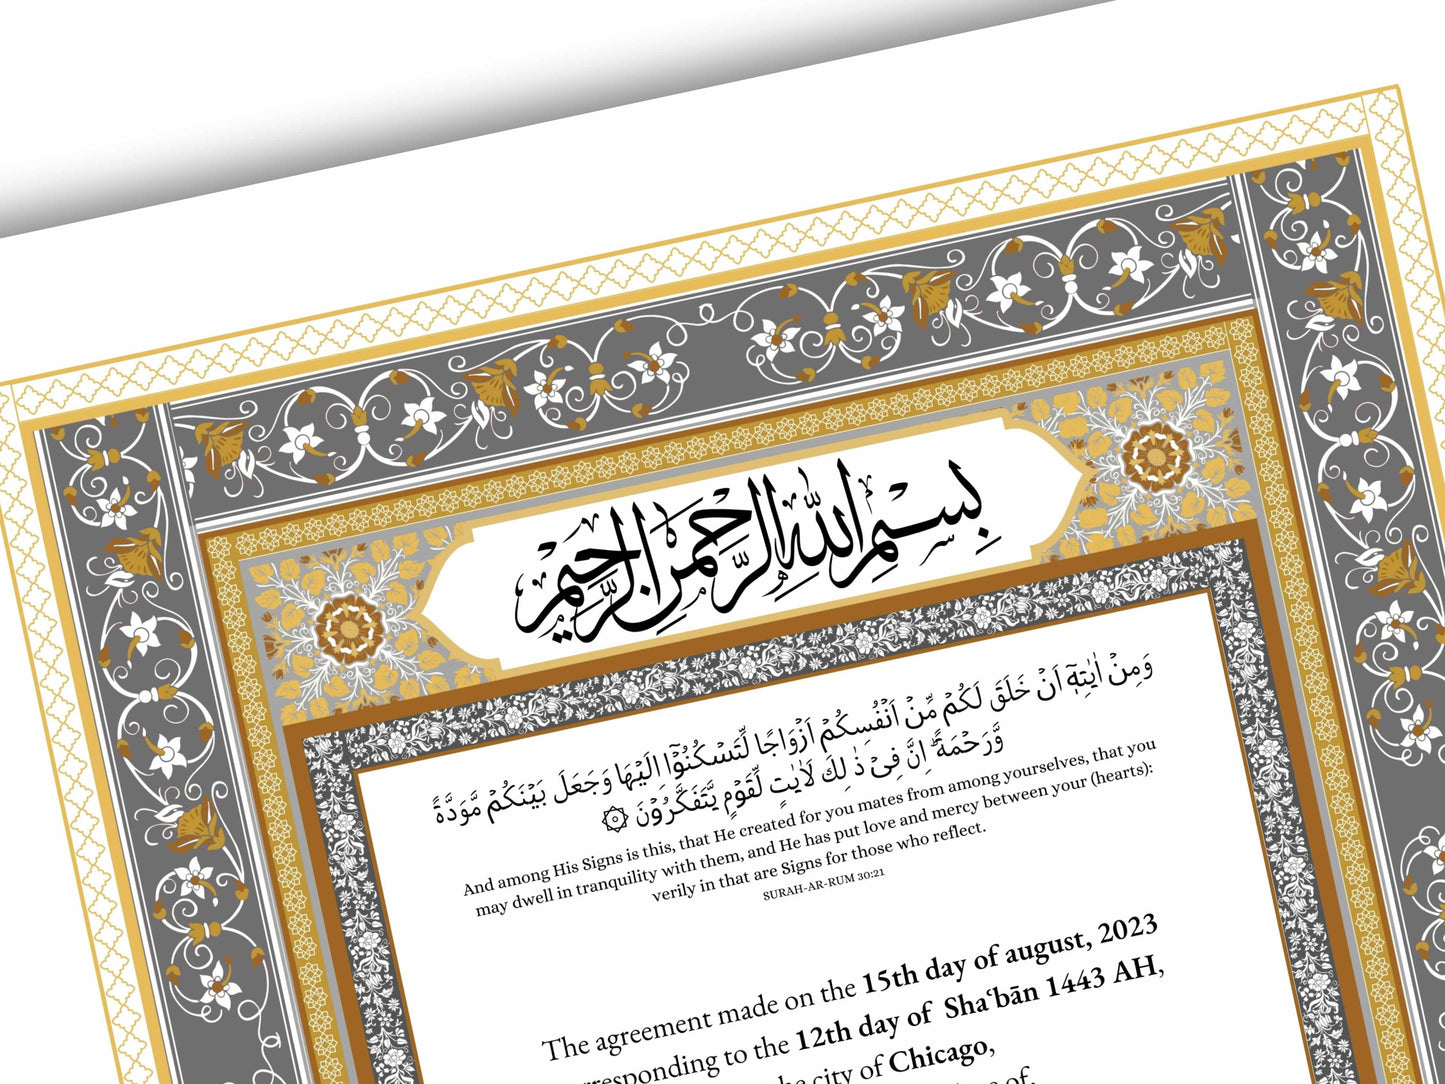 بِسْمِ اللهِ الرَّحْمٰنِ الرَّحِيْمِ
وَمِنْ اٰيٰتِهٖٓ اَنْ خَلَقَ لَكُمْ مِّنْ اَنْفُسِكُمْ اَزْوَاجًا لِّتَسْكُنُوْٓا اِلَيْهَا وَجَعَلَ بَيْنَكُمْ مَّوَدَّةً
وَّرَحْمَةً ۗ اِنَّ فِيْ ذٰلِكَ لَاٰيٰتٍ لِّقَوْمٍ يَّتَفَكَّرُوْنَ ۞
And among His Signs is this, that He created for you mates from among yourselves, that you
may dwell in tranquility with them, and He has put love and mercy between your (hearts):
verily in that are Signs for those who reflect.
SURAH-AR-RUM 30:21
The agreement made on the 15th day of august, 2023
responding to the 12th day of Sha‘bān 1443 AH,
city of Chicago,
of,